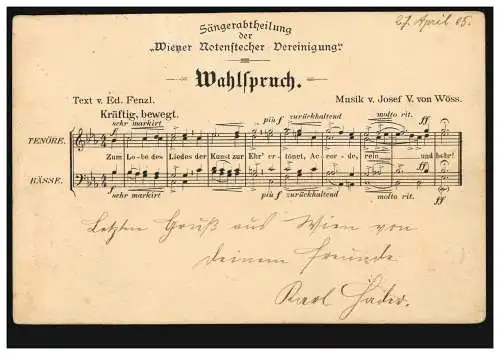 27. April 05.
Sängerabtheilung
der
„Wiener Notenstecher Vereinigung."
Wahlspruch.
Text v. Ed. Fenzl.
Musik v. Josef V. von Wöss.
Kräftig, bewegt.
sehr markirt più f zurückhaltend molto rit. ff
TENÖRE. f
Zum Lo-be des Liedes der Kunst zur Ehr' er-tönet, Ac-cor-de, rein und hehr!
BÄSSE.
f sehr markirt più f zurückhaltend molto rit. ff
Letzten Gruß aus Wien von
deinem Freunde
Karl